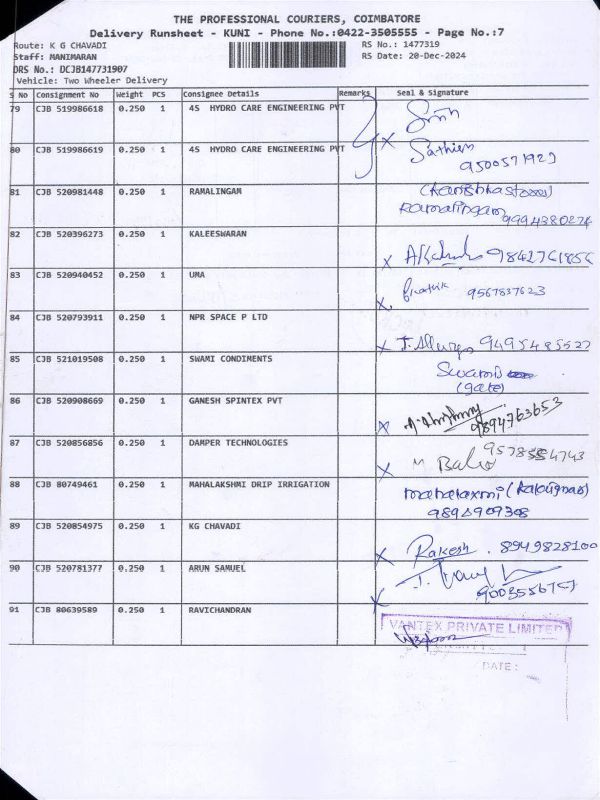 THE PROFESSIONAL COURIERS, COIMBATORE
Delivery Runsheet - KUNI - Phone No.:0422-3505555 - Page No.:7
Route: K G CHAVADI
RS No.: 1477319
Staff: MANIMARAN
RS Date: 20-Dec-2024
DRS No.: DCJB147731907
Vehicle: Two Wheeler Delivery
S No Consignment No Weight PCS Consignee Details Remarks Seal & Signature
79 CJB 519986618 0.250 1 4S HYDRO CARE ENGINEERING PVT
80 CJB 519986619 0.250 1 4S HYDRO CARE ENGINEERING PVT Sathien
9500571923
81 CJB 520981448 0.250 1 RAMALINGAM
Ramalingam 9994380274
82 CJB 520396273 0.250 1 KALEESWARAN
x 9842761856
83 CJB 520940452 0.250 1 UMA
x 9567837623
84 CJB 520793911 0.250 1 NPR SPACE P LTD
x 9495485527
85 CJB 521019508 0.250 1 SWAMI CONDIMENTS Swamis
(gate)
86 CJB 520908669 0.250 1 GANESH SPINTEX PVT
x 9894763653
87 CJB 520856856 0.250 1 DAMPER TECHNOLOGIES
x M Balu
88 CJB 80749461 0.250 1 MAHALAKSHMI DRIP IRRIGATION mahalaxmi
89 CJB 520854975 0.250 1 KG CHAVADI
x Rakesh . 8949828100
90 CJB 520781377 0.250 1 ARUN SAMUEL
x
91 CJB 80639589 0.250 1 RAVICHANDRAN
VANTEX PRIVATE LIMITED
DATE :